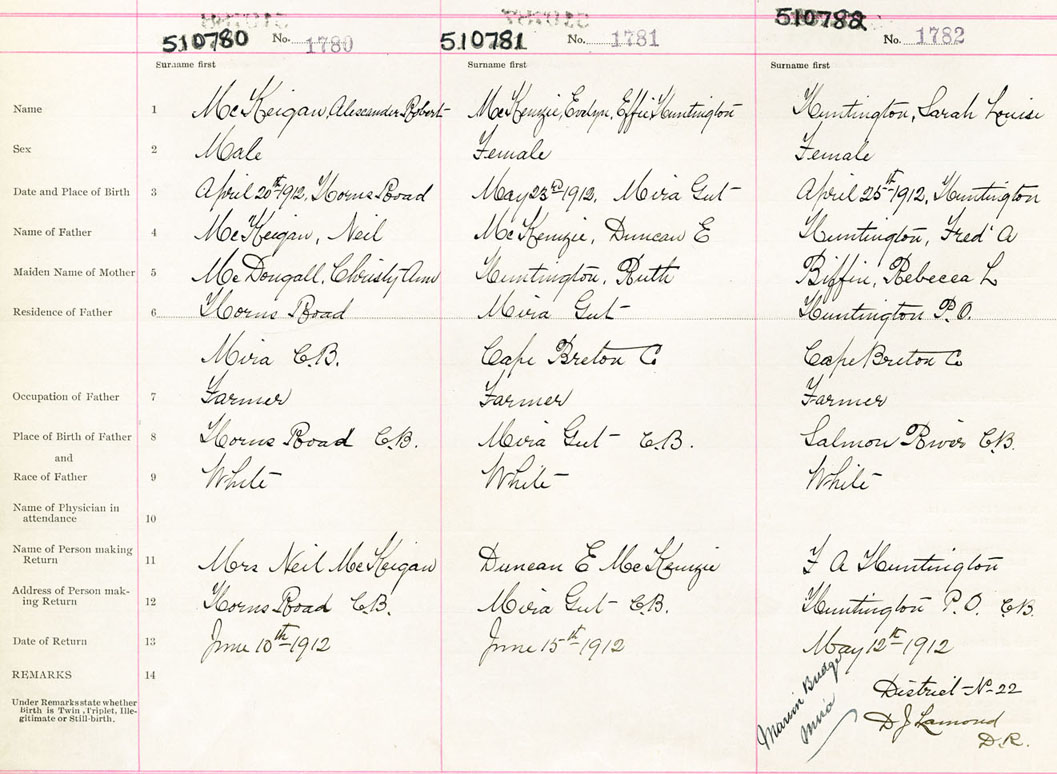 510780 No. 1780 510781 No. 1781 510782 No. 1782
Surname first Surname first Surname first
Name 1 McKeigan, Alexander Robert McKenzie, Evelyn, Effie Huntington Huntington, Sarah Louise
Sex 2 Male Female Female
Date and Place of Birth 3 April 20th 1912, Horns Road May 23rd 1912, Mira Gut April 25th 1912, Huntington
Name of Father 4 McKeigan, Neil McKenzie, Duncan E Huntington, Fred A
Maiden Name of Mother 5 McDougall, Christy Ann Huntington, Ruth Biffin, Rebecca L
Residence of Father 6 Horns Road Mira Gut Huntington P.O.
Mira C.B. Cape Breton C Cape Breton Co
Occupation of Father 7 Farmer Farmer Farmer
Place of Birth of Father 8 Horns Road C.B. Mira Gut C.B. Salmon River C.B.
and
Race of Father 9 White White White
Name of Physician in
attendance 10
Name of Person making
Return 11 Mrs Neil McKeigan Duncan E McKenzie F A Huntington
Address of Person mak-
ing Return 12 Horns Road C.B. Mira Gut C.B. Huntington P.O. C.B.
Date of Return 13 June 10th 1912 June 15th 1912 May 12th 1912
REMARKS 14
Under Remarks state whether
Birth is Twin, Triplet, Ille-
gitimate or Still-birth.
Marion Bridge
Mira
District No 22
D J Lamond
D.R.